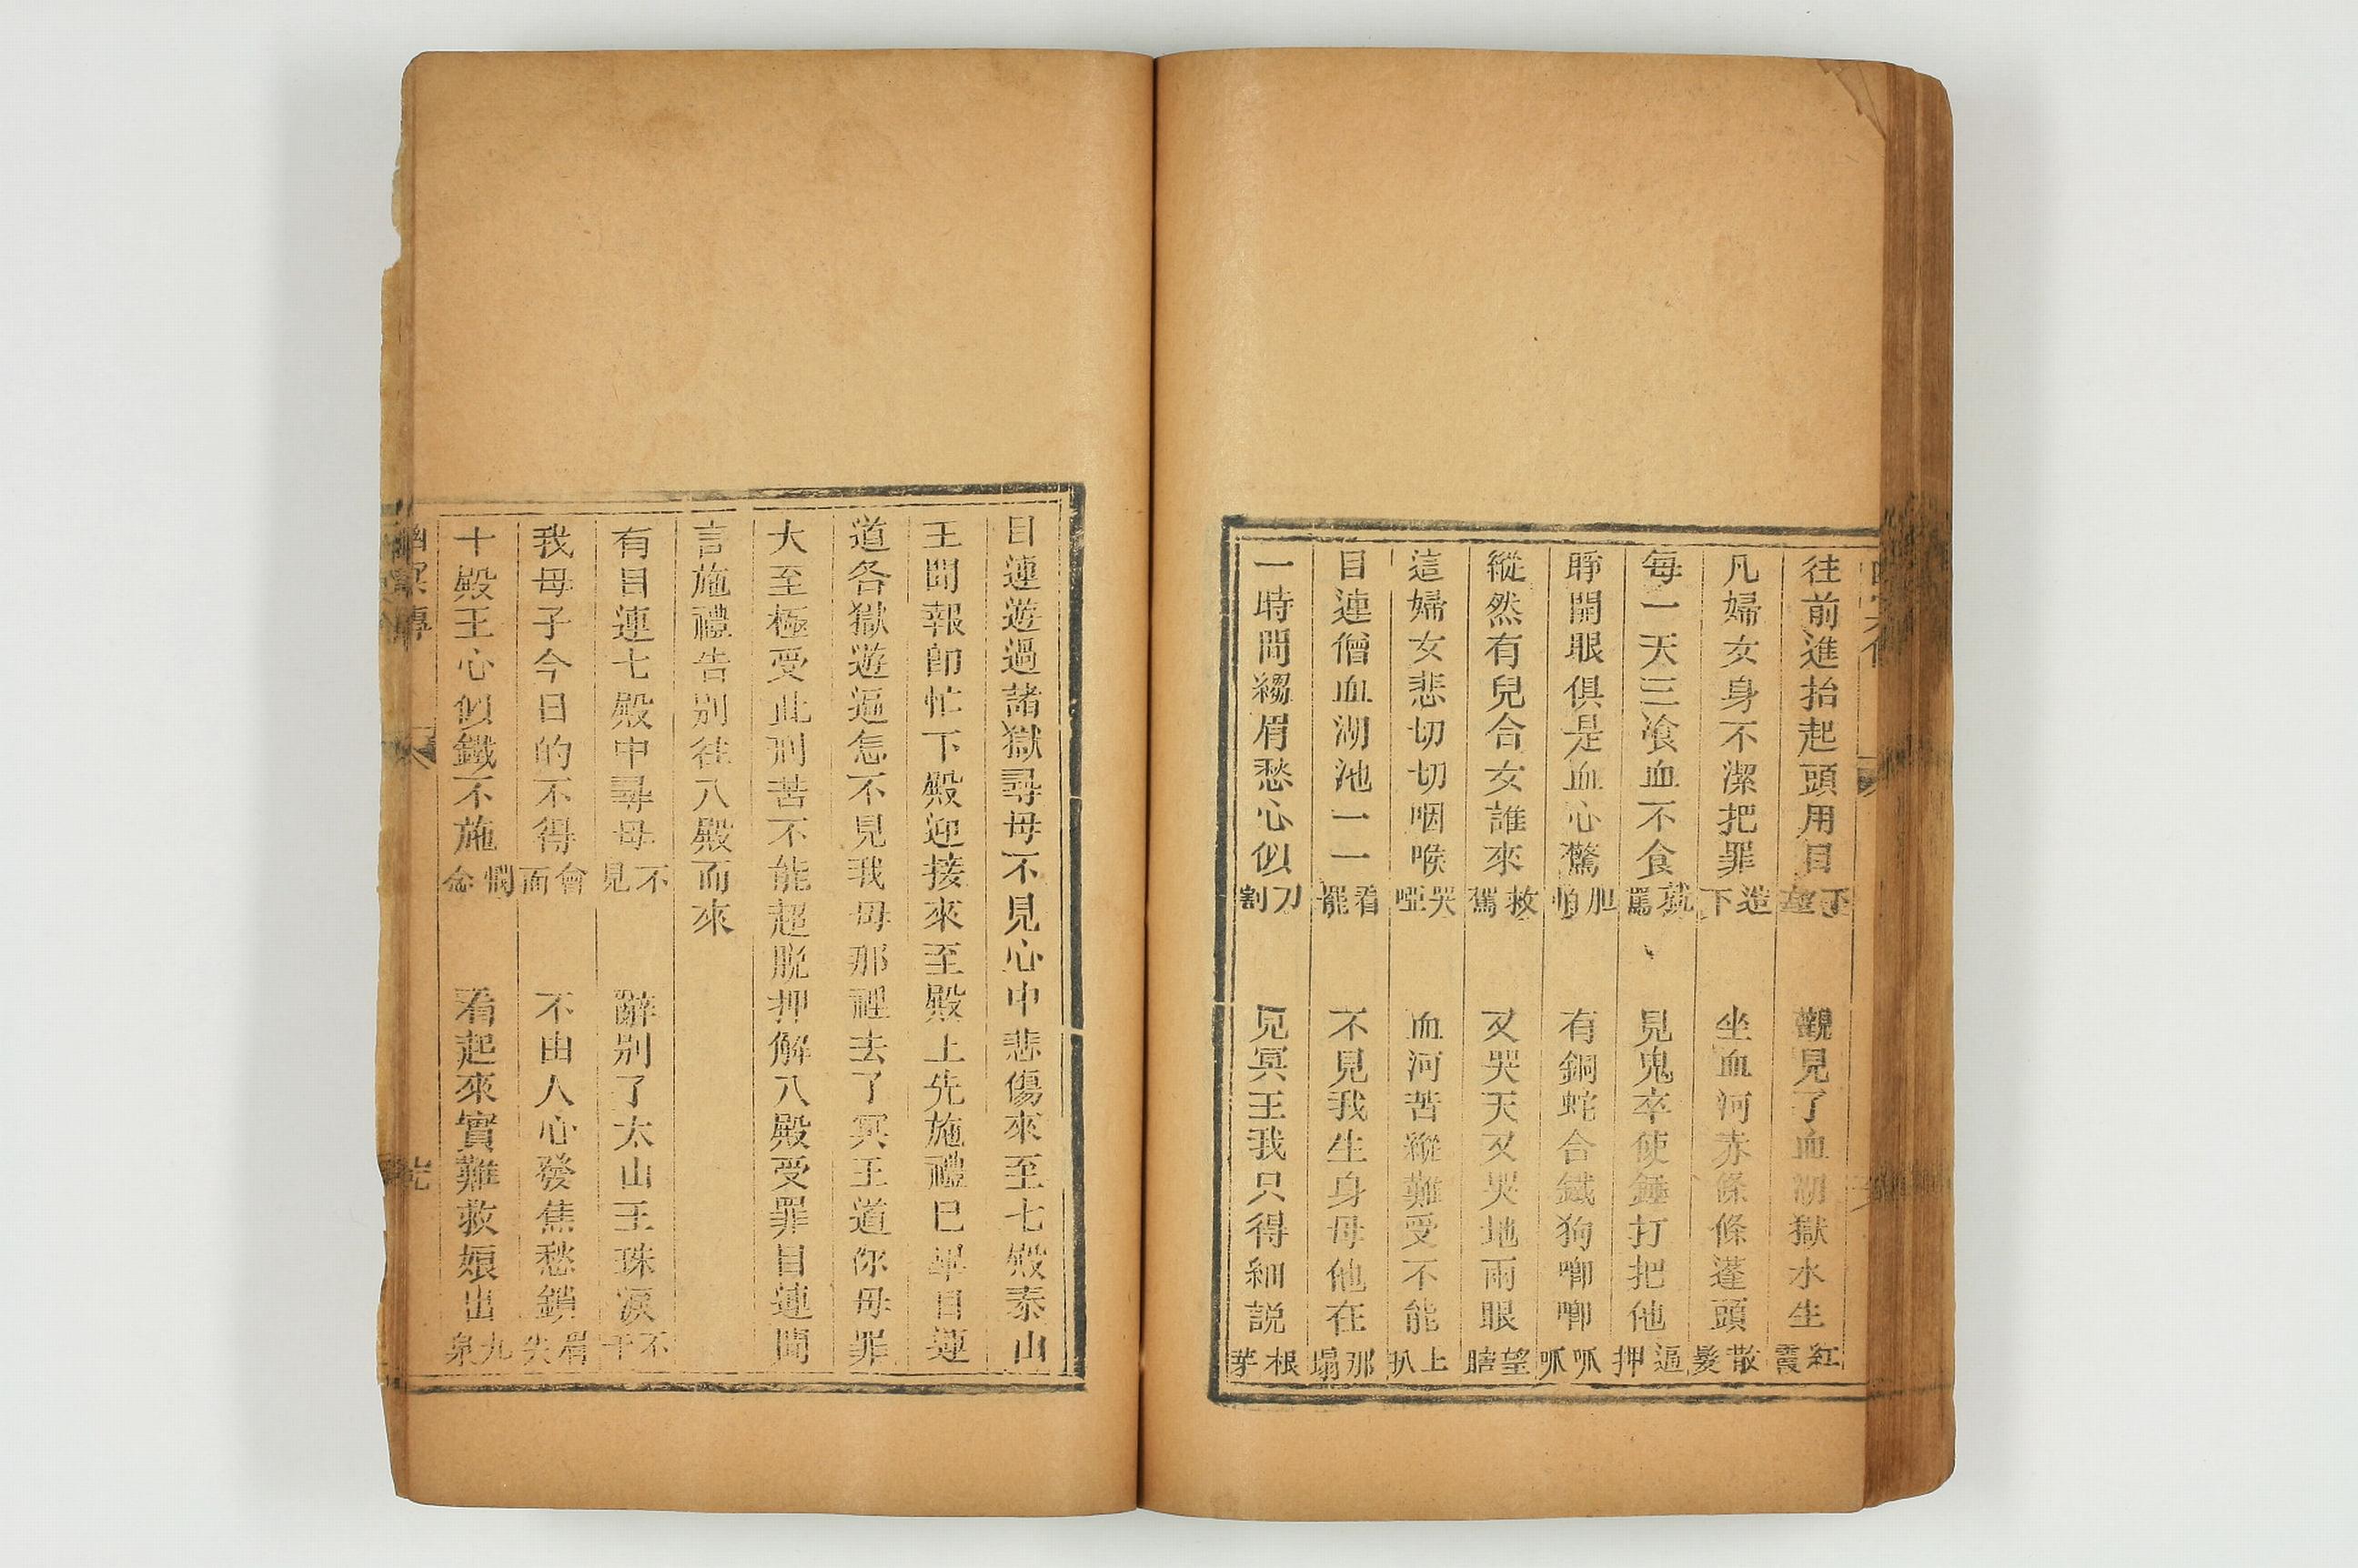 往前進抬起頭用目下望 觀見了血湖獄水生紅霞
凡婦女身不潔把罪造下 坐血河赤條條蓬頭散髮
每一天三飡血不食就罵 見鬼卒使錘打把他逼押
睜開眼俱是血心驚胆怕 有銅蛇合鐵狗啣啣呱呱
縱然有兒合女誰來救駕 又哭天又哭地兩眼望瞎
這婦女悲切切咽喉哭啞 血河苦縱難受不能上扒
目連僧血湖池一一看罷 不見我生身母他在那塌
一時間縐眉愁心似刀割 見冥王我只得細説根芽
目連遊過諸獄尋母不見心中悲傷來至七殿泰山
王聞報卽忙下殿迎接來至殿上先施禮已畢目連
道各獄遊遍怎不見我母那裡去了冥王道你母罪
大至極受此刑苦不能超脱押解八殿受罪目連聞
言施禮告别往八殿而來
有目連七殿中尋母不見 辭别了太山王珠淚不干
我母子今日的不得會面 不由人心發焦愁鎖眉尖
十殿王心似鐵不施憫念 看起來實難救娘出九泉
幽冥傳